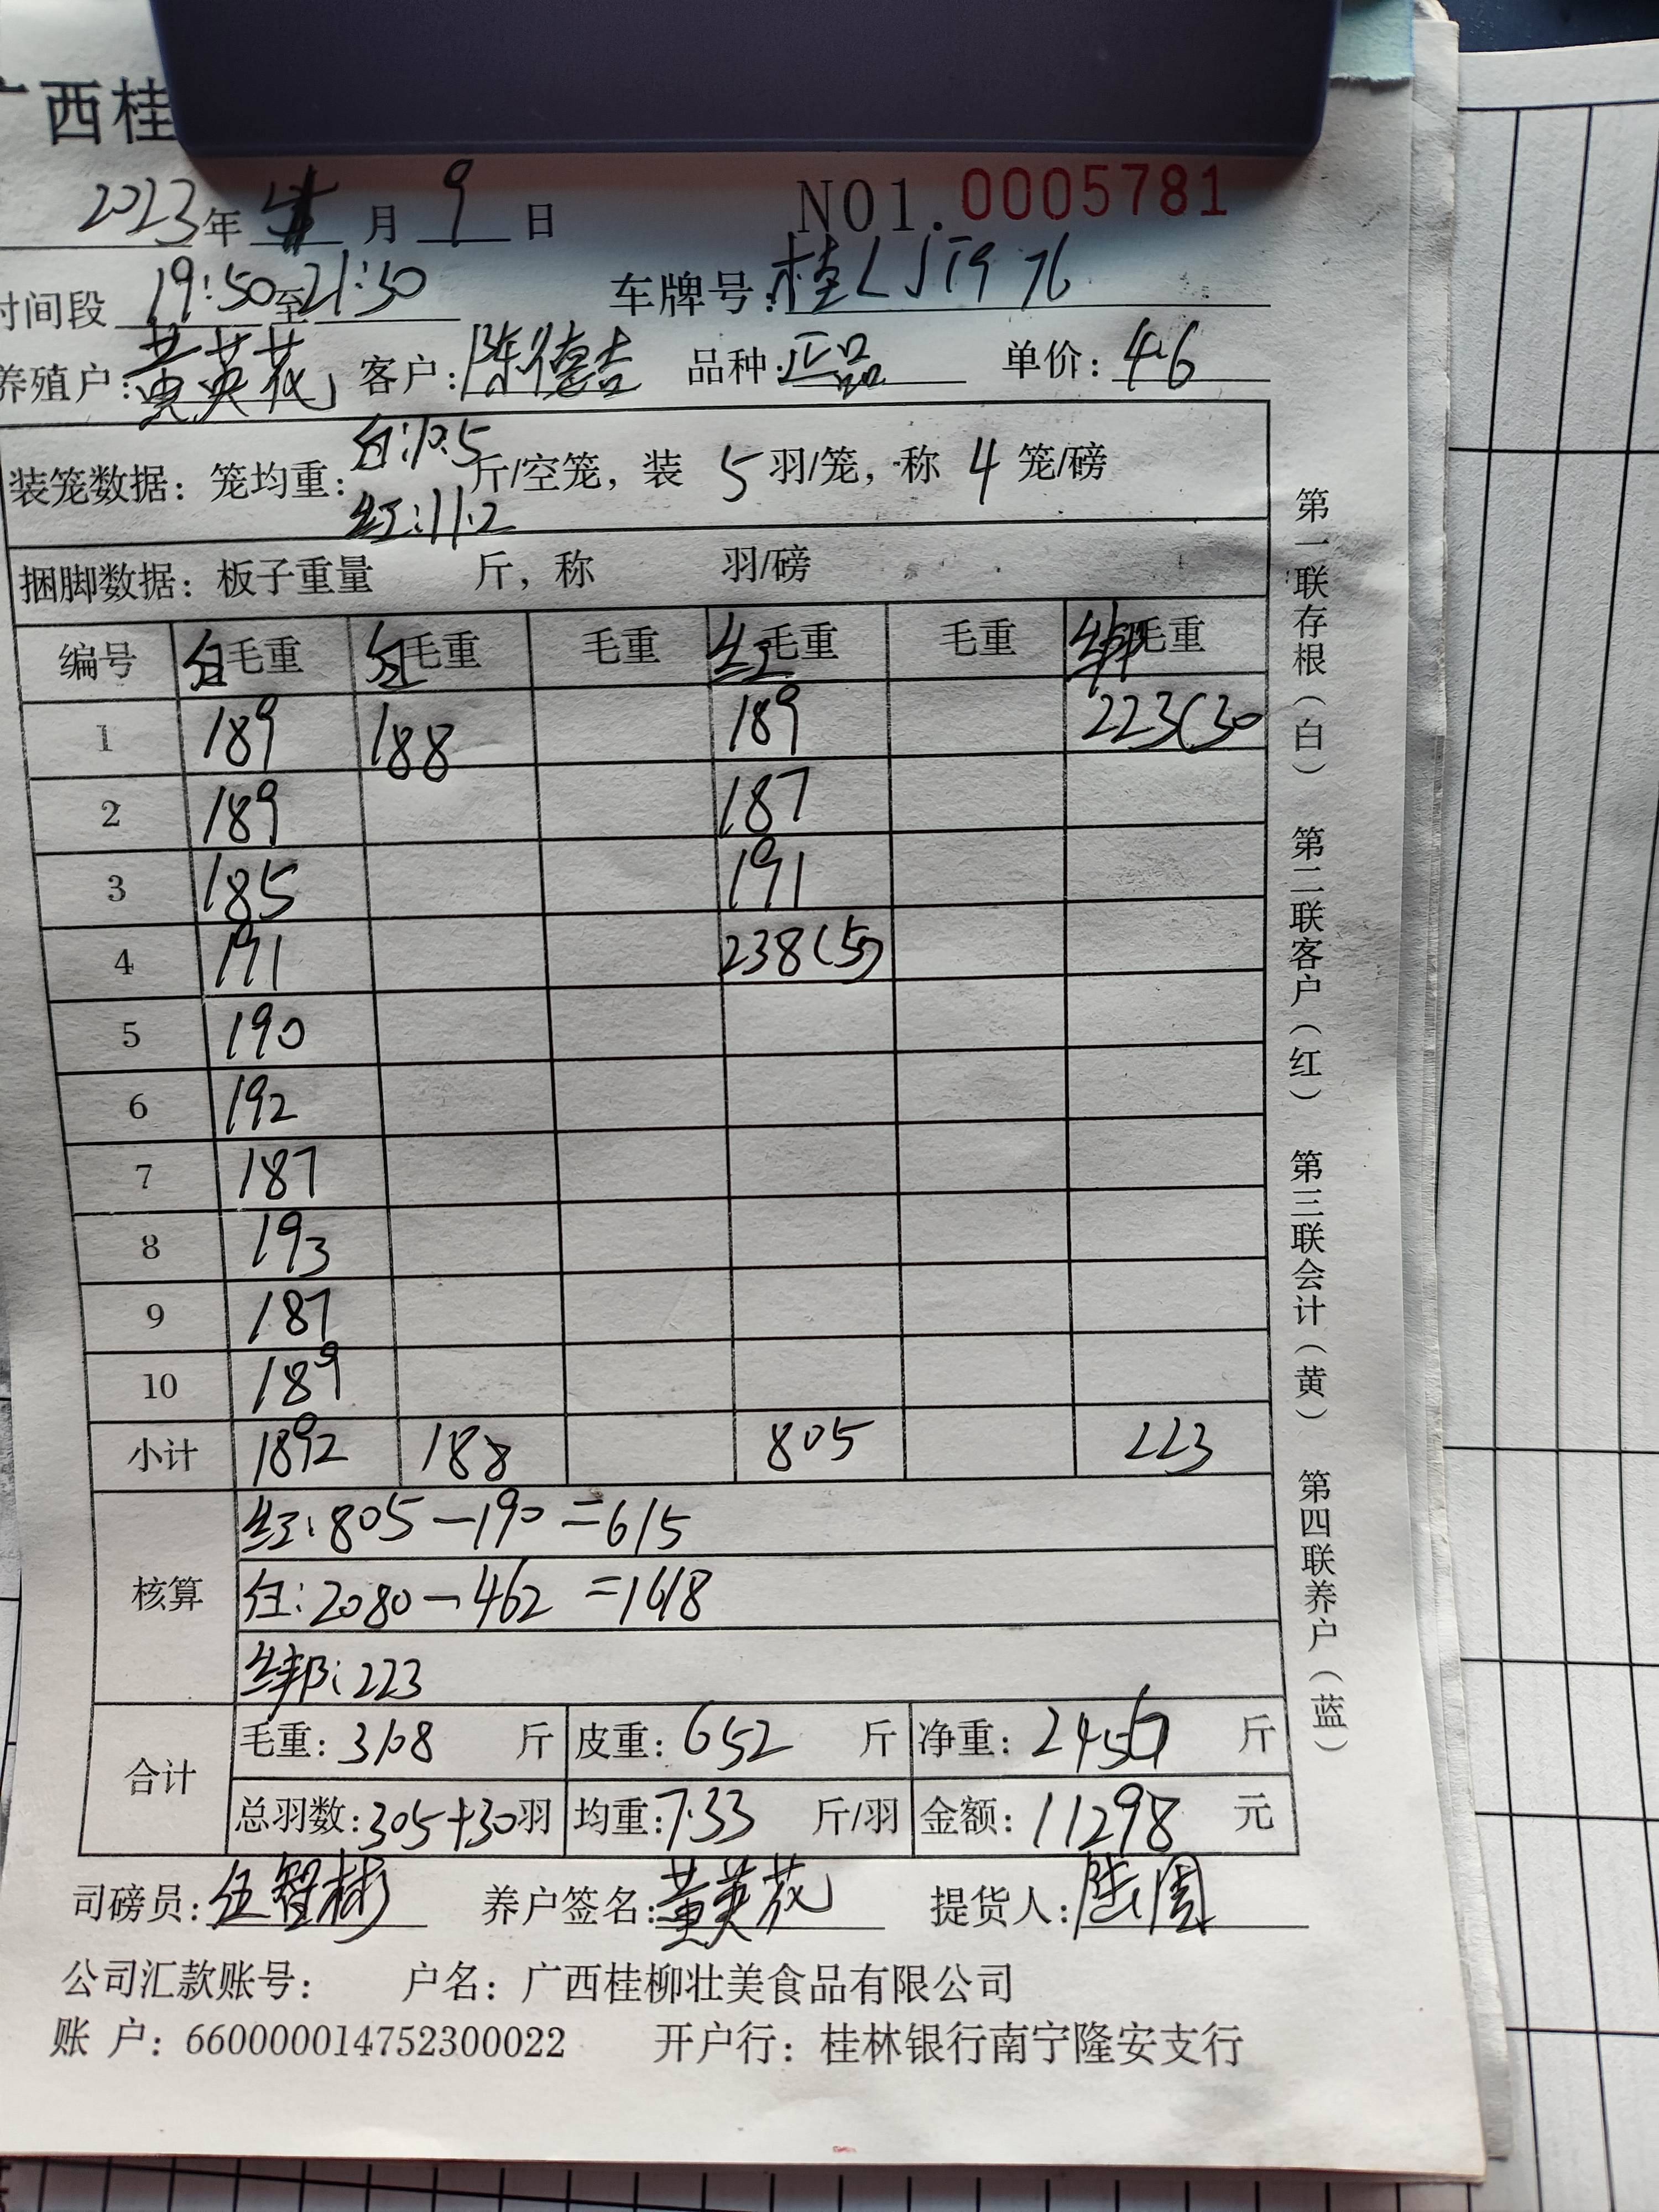 广西桂
2023年 月 9 日 NO1.0005781
时间段 19:50至21:30 车牌号:桂LJT976
养殖户:黄英花 客户:陈德吉 品种:正品 单价:4.6
装笼数据:笼均重:白:10.5 红:11.2 斤/空笼,装 5 羽/笼,称 4 笼/磅
捆脚数据:板子重量 斤,称 羽/磅
编号 白毛重 白毛重 毛重 红毛重 毛重 绑毛重
1 189 188 189 223(30
2 189 187
3 185 191
4 191 238(5)
5 190
6 192
7 187
8 193
9 187
10 189
小计 1892 188 805 223
核算 红:805-190=615
白:2080-462=1618
绑:223
合计 毛重:3108 斤 皮重:652 斤 净重:2456 斤
总羽数:305+30羽 均重:7.33 斤/羽 金额:11298 元
司磅员:伍智彬 养户签名:黄英花 提货人:
公司汇款账号: 户名:广西桂柳壮美食品有限公司
账 户:660000014752300022 开户行:桂林银行南宁隆安支行
第一联存根(白) 第二联客户(红) 第三联会计(黄) 第四联养户(蓝)